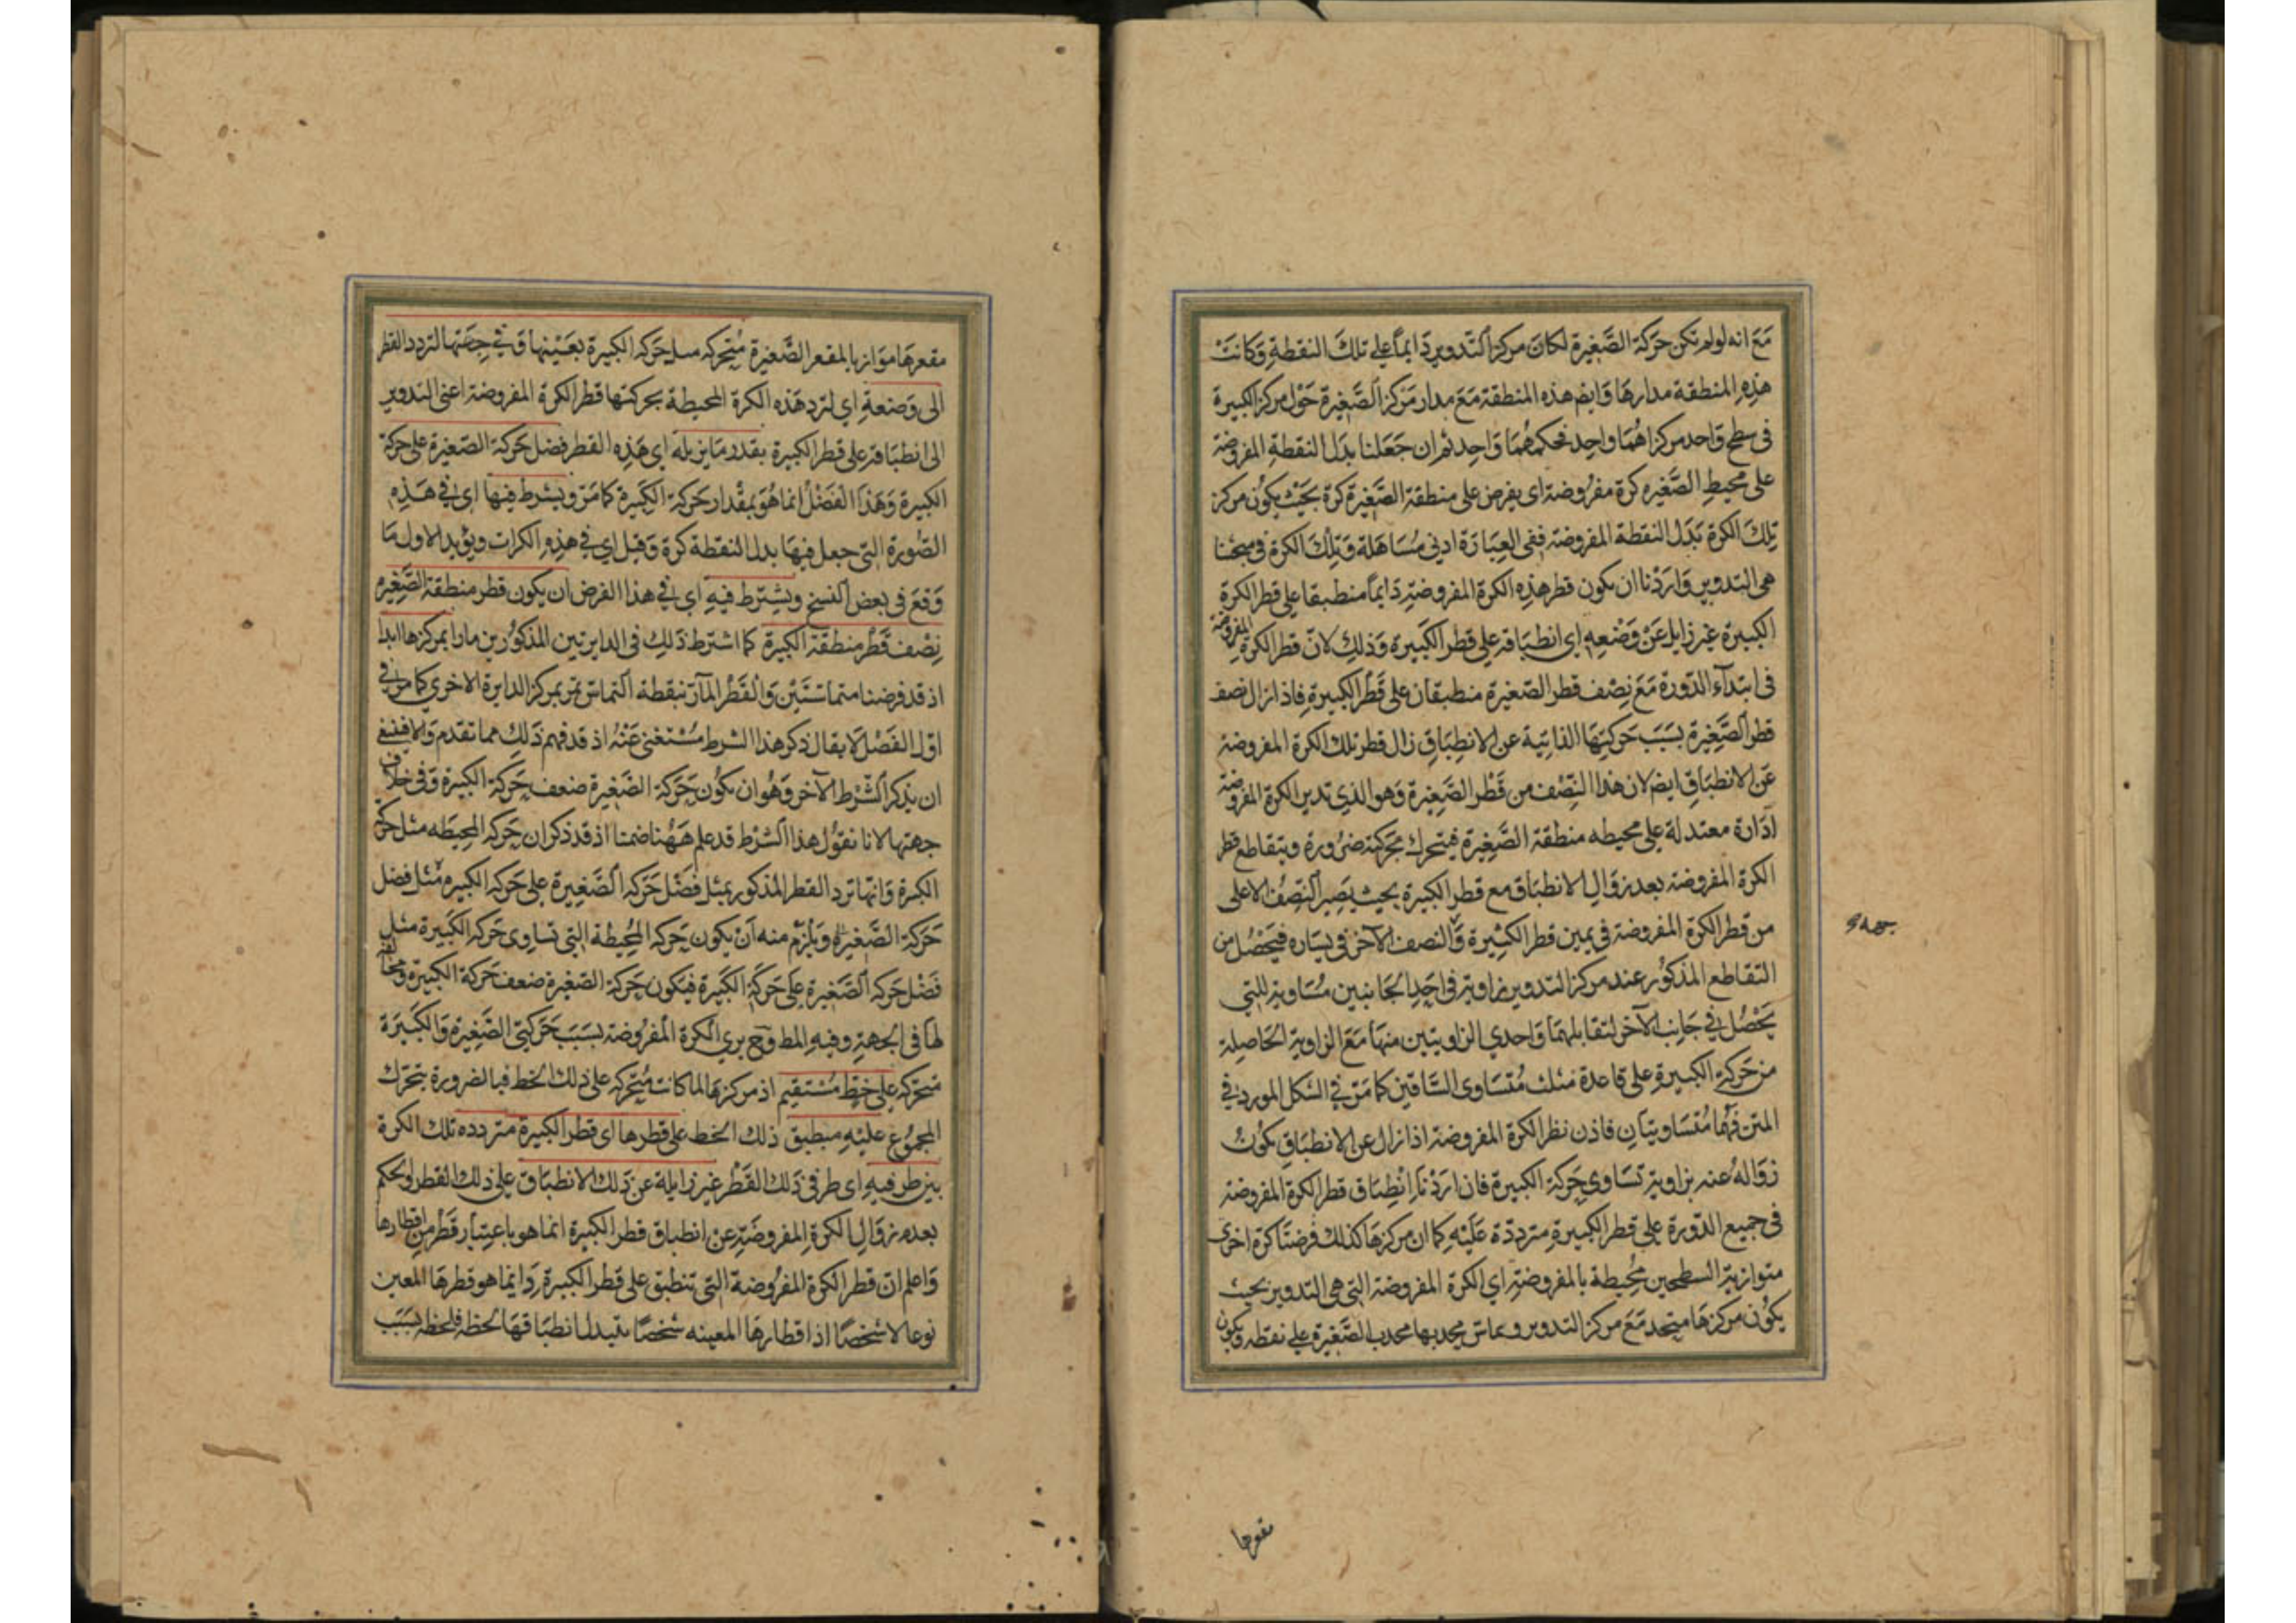 مَعَ انه لولم تكن حَركة الصَّغيرة لكانَ مركز التّدوير دَايماً على تلكَ النقطةِ وَكانتْ
هذِهِ المنطقة مدارهَا وَايضم هذه المنطقة مَعَ مدار مَركز الصَّغيرة حَوْل مركز الكبيرة
فى سطح وَاحد مركزاهُمَا واحِد فحكمهُمَا وَاحِد ثم ان جَعَلنا بدَل النقطةِ المفروضة
على محيطِ الصَّغيره كرة مفرُوضة اى يفرض على منطقة الصَّغيرة كرة بحَيْث يكوُن مركز
تِلكَ الكرة بَدَل النقطة المفروضة ففى العِبَارَة ادنى مُسَاهَلة وَتِلْكَ الكرة فى مبحثنا
هى التدوير وَارَدْنا ان يكون قطر هذِه الكرة المفروضةِ دَايماً منطبقا على قطر الكرة
الكبيرة غير زايل عَنْ وَضْعِه اى انطبَاقه على قطر الكَبيَرة وَذلِك لانّ قطر الكرة المفروضة
فى ابتدآء الدّورة مَعَ نِصْف قطر الصّغيرة منطبقان على قَطْر الكبيرةِ فاذا زال نصف
قطر الصَّغِيرة بسَبَب حَركتِهَا الذاتية عن الانطِبَاقِ زال قطر تلك الكرة المفروضة
عَن الانطبَاقِ ايضم لان هذا النِّصْف من قَطْر الصَّغِيرة وَهو الذِى تدير الكرة المفروضة
ادَارة معتدلة على محيطه منطقة الصَّغِيرة فيتحرك بحَركته ضرُورة ويتقاطع قطر
الكرة المفروضة بعد زوَالِ الانطبَاق مع قطر الكبيرة بحيث يصِير النّصِف الاعلى
من قطر الكرة المفروضة فى يمين قطر الكبيرة وَالنصف الآخر فى يسَاره فيَحْصُل من
التقاطع المذكوُر عند مركز التدوير زاوية فى احَدِ الجَانبين مُسَاوية للتى
يَحْصُل فى جَانب الآخر لتقابلهمَا وَاحدي الزاويتين منهَا مَعَ الزاوية الحَاصِلة
من حَركةِ الكبيرةِ على قاعدة مثلث مُتَسَاوى السَّاقين كمَا مَرّ فى الشكل المورد فى
المتن فهُمَا مُتَسَاويتَانِ فاذن قطر الكرة المفروضة اذا زال عن الانطبَاقِ يكوُن
زوَالهُ عنه بزاوية تسَاوى حَركة الكبيرة فان ارَدْنَا انْطِبَاق قطر الكرة المفروضة
فى جميع الدّورة على قطر الكبيرةِ مترددّة عَلَيْه كما ان مركزهَا كذلك فرضنَا كرة اخرى
متوازية السطحين محُيطة بالمفروضةِ اي الكرة المفروضة التى هى التدوير بحيث
يكوُن مركزهَا متحد مَعَ مركز التدوير ويماسّ محدبها محدب الصَّغيرةِ على نقطه ويكون
مقعرها
مقعرهَا موَازيا لمقعر الصَّغيرة مُتحركه مثل حَركه الكبيرة بعَيْنهَا وَفى جِهَتها لتردد القطر
الى وَضعهِ اي لترد هَذه الكرة المحيطة بحركتها قطر الكرة المفروضة اعنى التدوير
الى انطبَاقه على قطر الكبيرة بقدر مَا يزيله اى هَذِه القطر فضل حَركة الصّغيرة على حركة
الكبيرة وَهَذَا الفَضْلُ انما هُوَ بمِقْدَار حَركة الكَبيرة كمَا مَرّ ويشرط فيهَا اى فى هَذِهِ
الصّورة التى جعل فيهَا بدل النقطة كرة وَقيل اى فى هذِهِ الكرات ويؤيد الاول مَا
وَقعَ فى بعض النسخ ويشترط فيهِ اى فى هذا الفرض ان يكون قطر منطقة الصَّغيرة
نِصْف قَطْر منطقة الكَبيرة كما اشترط ذلِكَ فى الدايرتين المذكوُرين مارا بمركزها ابدا
اذ قد فرضنا متماسّتَيْن وَالقَطْر المآرّ بنقطة التّماسّ يمرّ بمركز الدايرة الاخرى كما مَرّ فى
اوّل الفَصْل لا يقال ذكر هذا الشرط مسُتْغنى عَنْهُ اذ قد فهم ذَلِك مما تقدم وَالا فينبغى
ان يذكر الشّرط الآخر وَهُو ان يكوُن حَركة الصَّغيرة ضعف حَركة الكبيرة وَفى خلاف
جهتها لانا نقوُل هذا الشرْط قد علم هَهُنا ضمنا اذ قد ذكر ان حَركه المحيطه مثل حركة
الكبيرة وَانهَا ترد القطر المذكور بمثل فَضْل حَركه الصَّغيرة على حَركه الكبيره مثل فضل
حَركة الصَّغيرة وَيلزَم منه اَنْ يكون حَركه المحُيطة التى تسَاوى حَركه الكَبيرة مثل
فَضْل حَركه الصَّغيرة على حَركَة الكَبيرة فيكون حَركة الصّغيرة ضعف حَركة الكبيرة ومخالفة
لهَا فى الجهةِ وفيهِ المط وَح يرى الكرة المفرُوضة بسَبَب حَركتى الصَّغيرةِ وَالكَبيَرة
مُتحركه على خطٍّ مسُتقيم اذ مركزهَا لما كانت مُتحركه على ذلك الخط فبالضرورة يتحرّك
المجموُع عليْهِ منطبق ذلك الخط على قطرها اى قطر الكبيرة مترددة تلك الكرة
بين طرفيهِ اى طرفى ذلك القَطْر غير زايلة عن ذلك الانطبَاق على ذلك القطر وَالحكم
بعدم زوَالِ الكرةِ المفروضَةِ عن انطباق قطر الكبيرة انما هو باعتِبَار قَطْر من اقطارهَا
وَاعلم انّ قطر الكرة المفرُوضة التى تنطبق على قطر الكبيرة دَايما هو قطرهَا المعين
نوعا لا شخصًا اذا قطارها المعينه شخصًا يتبدل انطبَاقهَا لحظه فلحظه بسَبَب